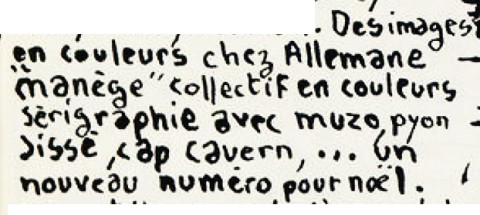 . Des images
en couleurs chez Allemane
"manège" collectif en couleurs
sérigraphie avec muzo, pyon
Jissé, cap cavern, ... un
nouveau numéro pour noël.